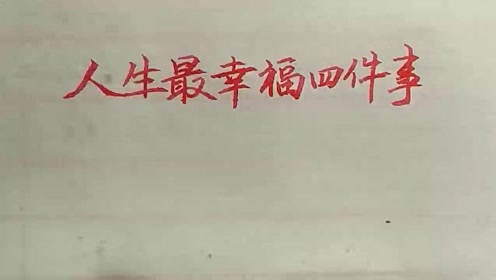 人生最幸福四件事